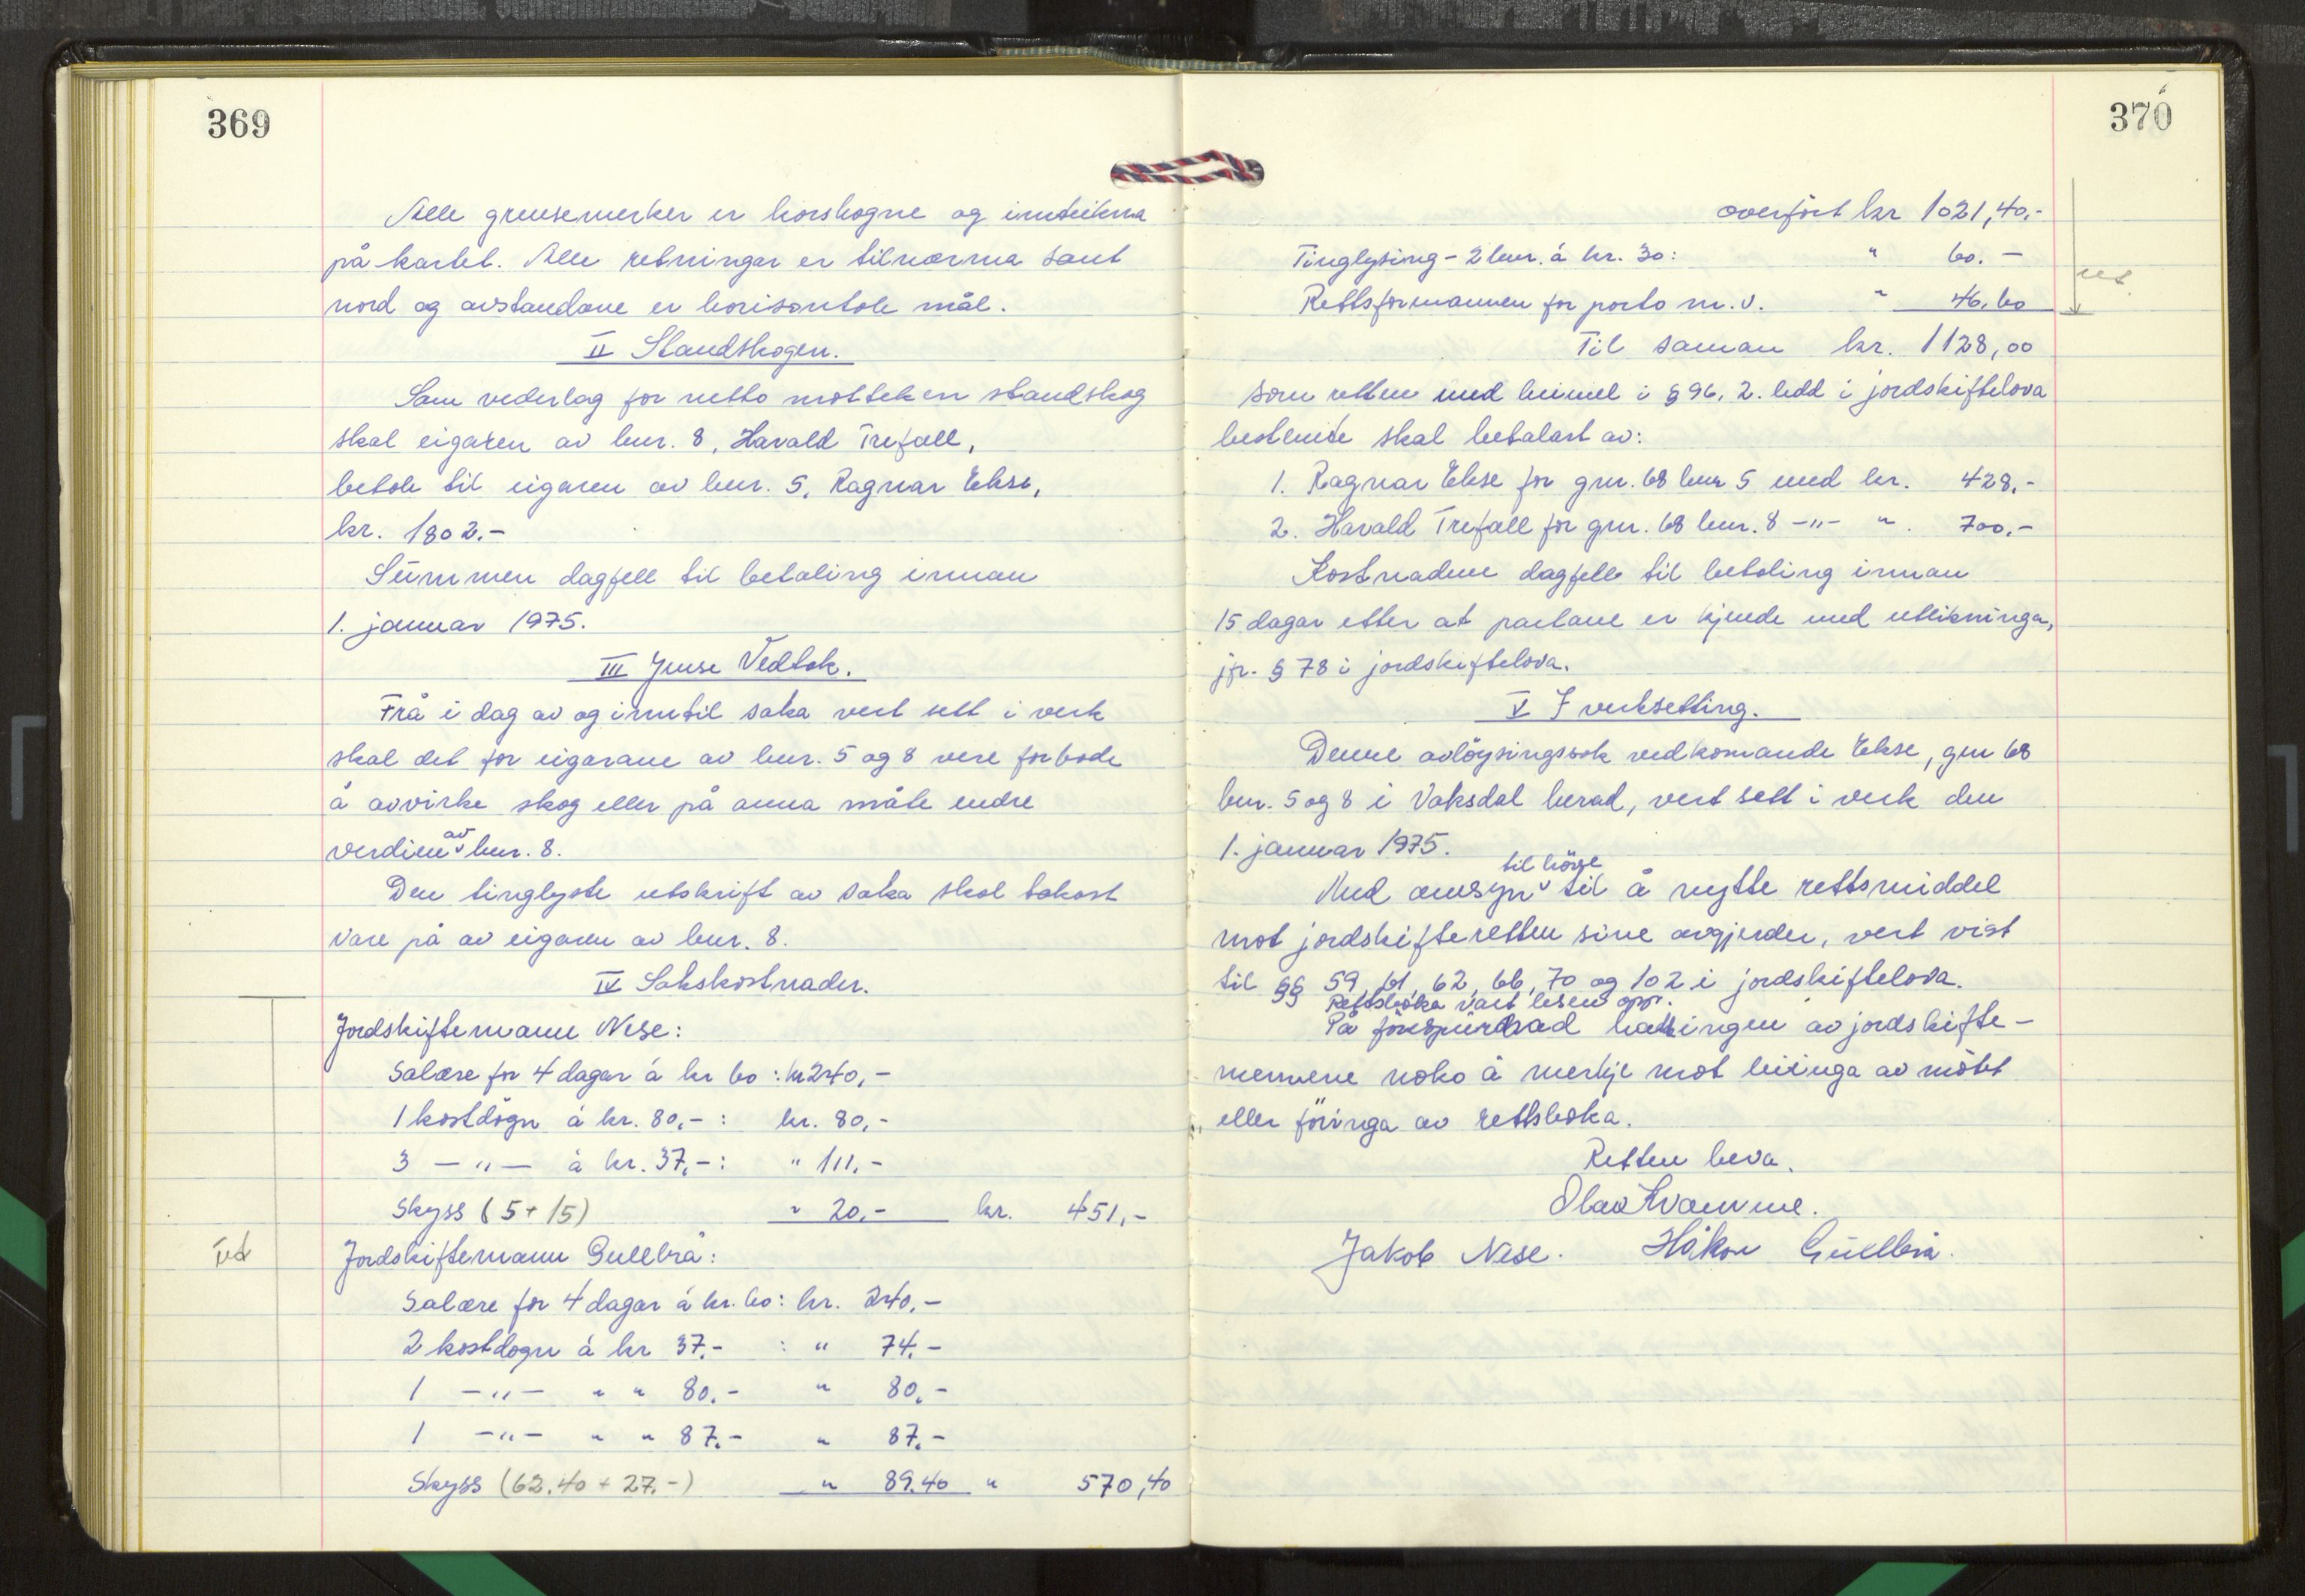 369
Alle grensemerker er kroshogne og innteikna
på kartet. Alle retningar er tilnærma sant
nord og avstandane er horisontale mål.
II Standskogen.
Som vederlag for netto motteken standskog
skal eigaren av bnr. 8, Harald Trefall,
betale til eigaren av bnr. 5, Ragnar Ekse,
kr. 1802.-
Summen dagfell til betaling innan
1. januar 1975.
III Ymse Vedtak.
Frå i dag av og inntil saka vert sett i verk
skal det for eigarane av bnr. 5 og 8 vere forbode
å avvirke skog eller på anna måte endre
verdien av bnr. 8.
Den tinglyste utskrift av saka skal takast
vare på av eigaren av bnr. 8.
IV Sakskostnader.
Jordskiftemann Nese:
Salære for 4 dagar á kr 60 : kr 240,-
1 kostdøgn á kr. 80,- : kr. 80,-
3 -"- á kr. 37,-: " 111.-
Skyss (5+15) " 20,- kr. 451,-
Jordskiftemann Gullbrå:
Salære for 4 dagar á kr. 60: kr. 240,-
2 kostdøgn á kr 37.- : " 74.-
1 -"- " " 80.- " 80.-
1 -"- " " 87.- " 87.-
Skyss (62.40 + 27.-) " 89.40 " 570,40
370
overført kr 1021,40.-
Tinglysing - 2 bnr. á kr. 30: " 60.-
ut.
Rettsformannen for porto m.v. " 46,60
Til saman kr. 1128,00
som retten med heimel i § 96, 2. ledd i jordskiftelova
bestemte skal betalast av:
1. Ragnar Ekse for gnr. 68 bnr 5 med kr. 428.-
2. Harald Trefall for gnr. 68 bnr. 8 -"- " 700.-
Kostnadene dagfell til betaling innan
15 dagar etter at partane er kjende med utlikninga,
jfr. § 78 i jordskiftelova.
V Iverksetting.
Denne avløysingssak vedkomande Ekse, gnr 68
bnr. 5 og 8 i Vaksdal herad, vert sett i verk den
1. januar 1975.
Med omsyn til høve til å nytte rettsmiddel
mot jordskifteretten sine avgjerder, vert vist
til §§ 59, 61, 62, 66, 70 og 102 i jordskiftelova.
Rettsboka vart lesen opp.
På førespurnad hadde ingen av jordskifte-
mennene noko å merkje mot leiinga av møtet
eller føringa av rettsboka.
Retten heva.
Olav Kvamme.
Jakob Nese. Håkon Gullbrå.